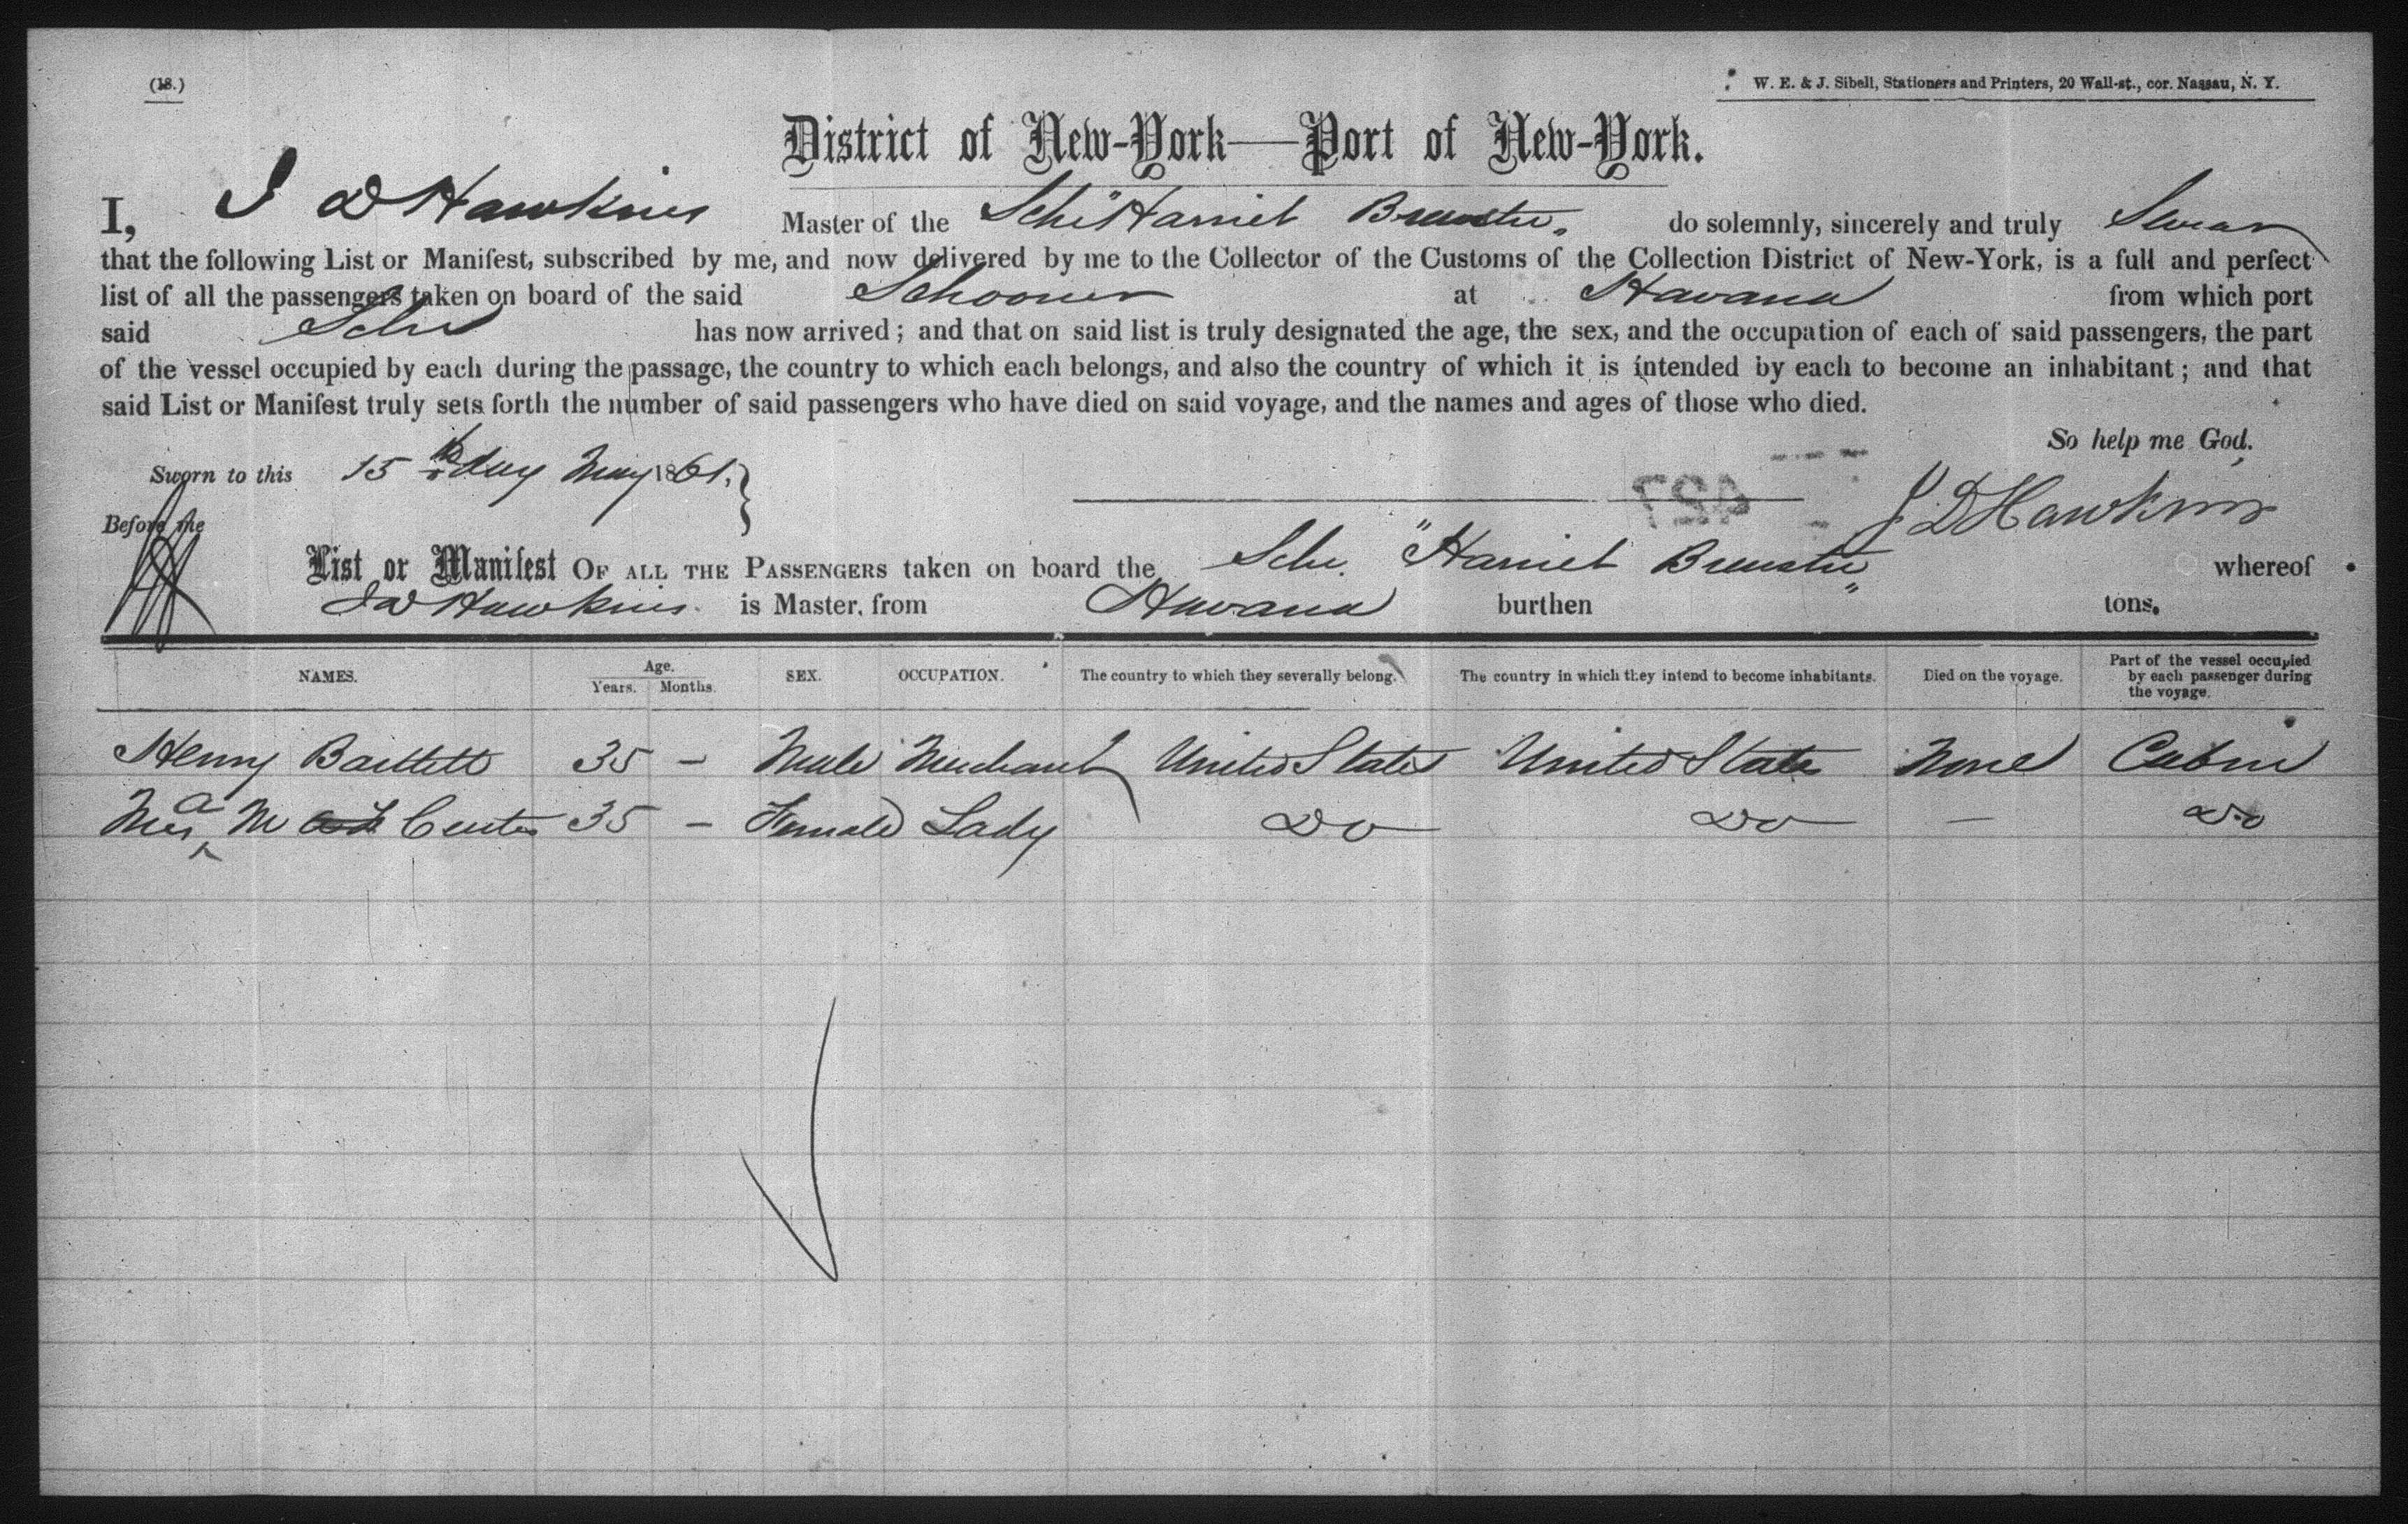 (18.)
W. E. & J. Sibell, Stationers and Printers, 20 Wall-st., cor. Nassau, N. Y.
District of New-York—Port of New-York.
I, J D Hawkins Master of the Schr "Harriet Brewster" do solemnly, sincerely and truly Swear
that the following List or Manifest, subscribed by me, and now delivered by me to the Collector of the Customs of the Collection District of New-York, is a full and perfect
list of all the passengers taken on board of the said Schooner at Havana from which port
said Schr has now arrived; and that on said list is truly designated the age, the sex, and the occupation of each of said passengers, the part
of the vessel occupied by each during the passage, the country to which each belongs, and also the country of which it is intended by each to become an inhabitant; and that
said List or Manifest truly sets forth the number of said passengers who have died on said voyage, and the names and ages of those who died.
So help me God.
Sworn to this 15th day May 1861.
427
J D Hawkins
Before me
List or Manifest OF ALL THE PASSENGERS taken on board the Schr. "Harriet Brewster" whereof
J D Hawkins is Master, from Havana burthen tons.
NAMES. Age. Years. Months. SEX. OCCUPATION. The country to which they severally belong. The country in which they intend to become inhabitants. Died on the voyage. Part of the vessel occupied by each passenger during the voyage.
Henry Bartlett 35 – Male Merchant United States United States None Cabin
Mrs a M Center 35 – Female Lady Do Do — Do